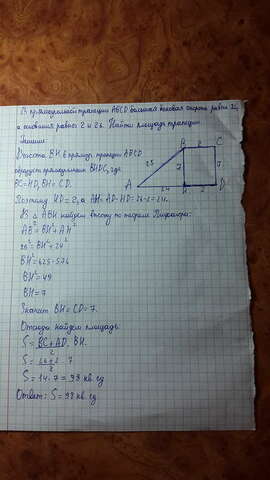 В прямоугольной трапеции ABCD большая боковая сторона равна 25,
а основания равны 2 и 26. Найти площадь трапеции.
Решение
Высота BH в прямоуг. трапеции ABCD
образует прямоугольник BHDC, где
BC=HD, BH= CD.
Поэтому HD = 2, а AH= AD-HD=26-2=24.
Из △ ABH найдем высоту по теореме Пифагора:
AB²=BH²+AH²
25²=BH²+24²
BH²=625-576
BH²=49
BH=7
Значит BH=CD=7.
Отсюда найдем площадь:
S= BC+AD/2 · BH.
S= 26+2/2 · 7
S= 14·7=98 кв. ед
Ответ: S=98 кв. ед
B 2 C
25 7 7
A 24 H 2 D